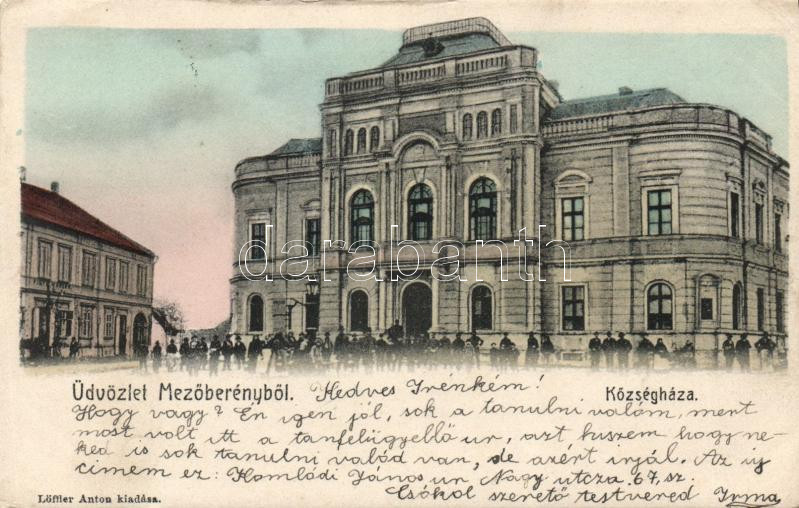 darabanth
Üdvözlet Mezőberényből.
Községháza.
Kedves Irénkém!
Hogy vagy? Én igen jól, sok a tanulni valóm, mert
most volt itt a tanfelügyelő ur, azt hiszem hogy ne-
ked is sok tanulni valód van, de azért irjál. Az uj
cimem ez: Komlódi János ur Nagy utcza 67. sz.
Csókol szerető testvered Irma
Löffler Anton kiadása.